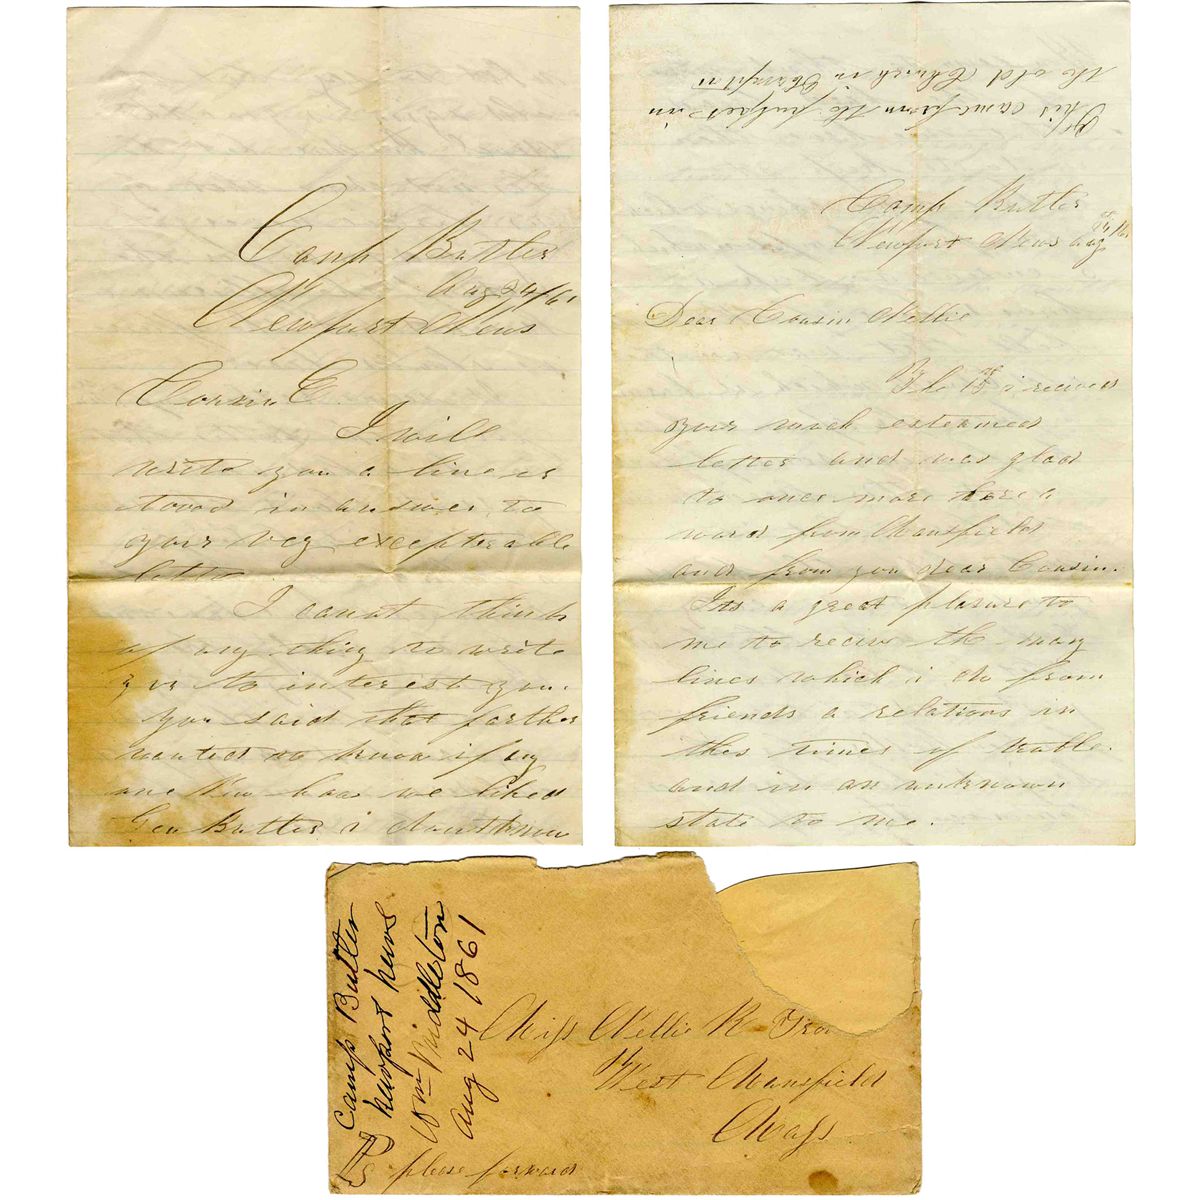 Camp Butler
Aug 24/61
Newport News
Cousin E.
I will
write you a line er
towo in answer to
your vey excepterable
letter
I canot think
of any thing to write
you to interest you.
You said that farther
wanted to know if any
one knew how we liked
Gen Butler i dount know
This came from the pulpet in
the old Church in Hampton
Camp Butler
Newport News Aug
Dear Cousin Nellie
i recived
your much esteamed
letter and was glad
to once more here a
word from Mansfield
and from you dear Cousin.
Its a great plasure to
me to reciv the many
lines which i do from
friends a relations in
thes times of truble.
and in an unknown
state to me.
Camp Butler
Newport News
Wm Middleton
Aug 24 1861
Miss Nellie R.
West Mansfield
Mass
please forward